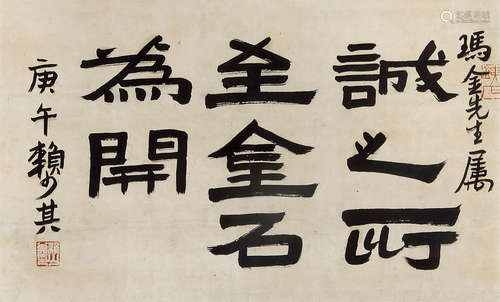 瑪金先生属
誠之所
至金石
為開
庚午賴少其